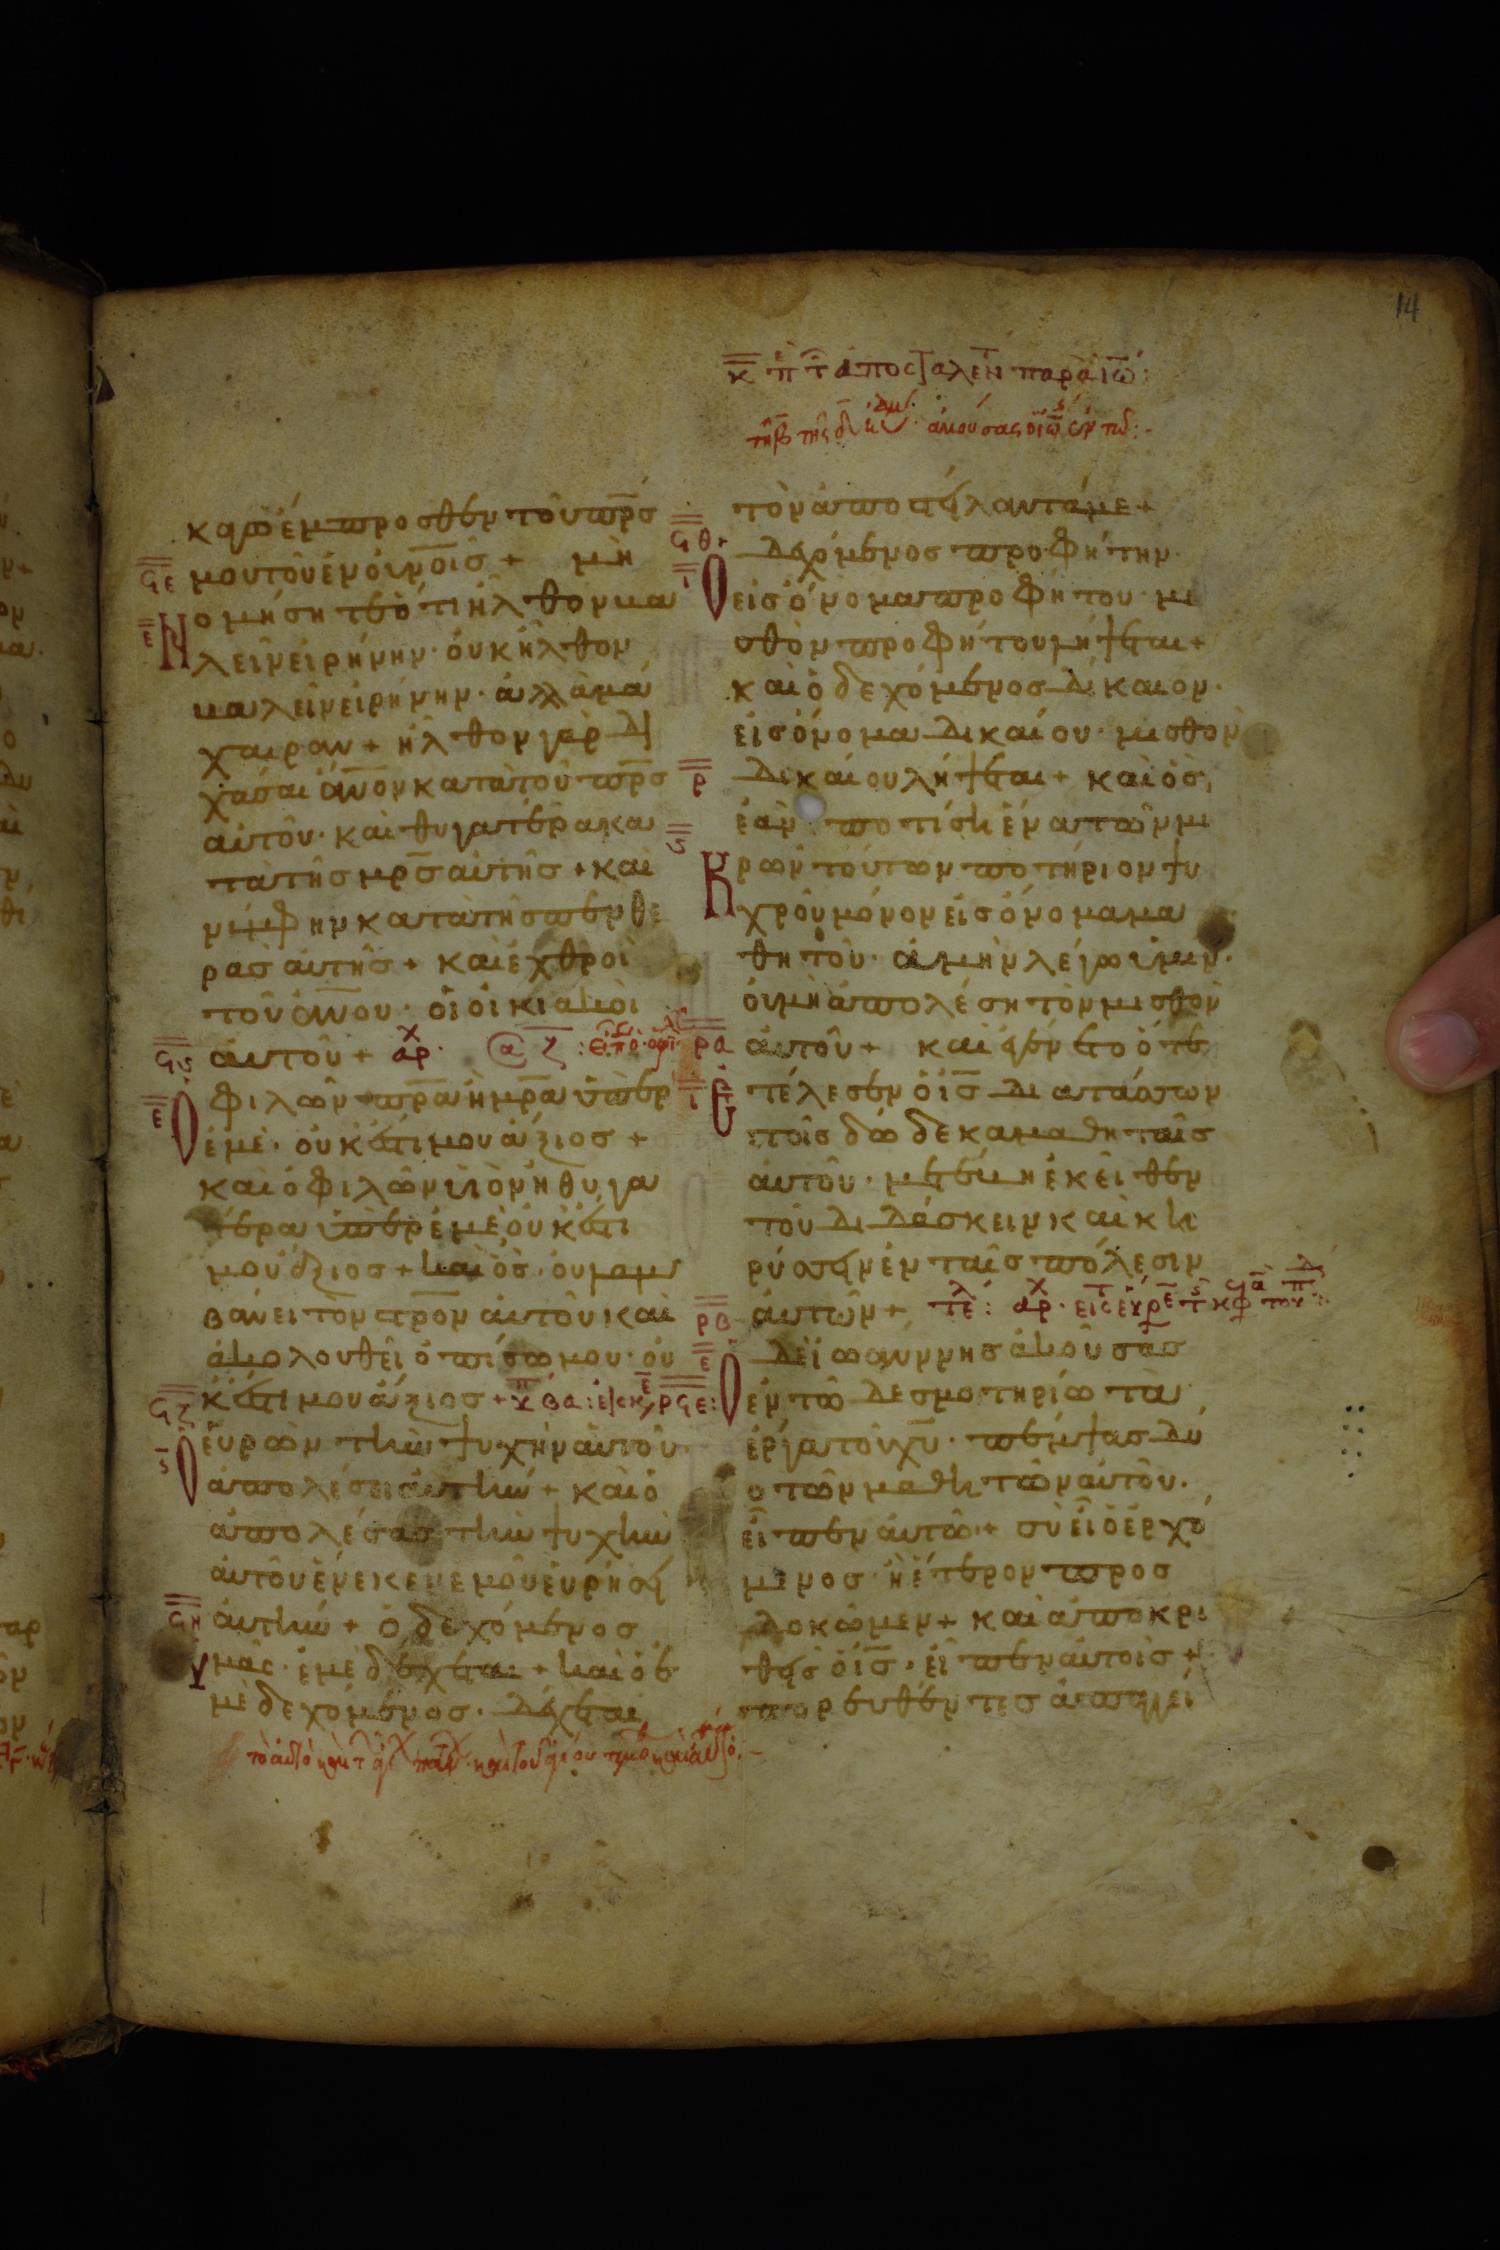 14
κἀγὼ ἔμπροσθεν τοῦ πρς
μου τοῦ ἐν οὐνοῖς + μὴ
Νομήσητε ὅτι ἦλθον κα
λεῖν εἰρήνην· οὐκ ἦλθον
καλεῖν εἰρήνην· ἀλλὰ μά
χαιραν + ἦλθον γὰρ δι
χάσαι ἄνον κατὰ τοῦ πρσ
αὐτοῦ· καὶ θυγατέρα κα
τὰ τῆς μρς αὐτῆς + καὶ
νύμφην κατὰ τῆς πενθε
ρᾶς αὐτῆς + καὶ ἐχθροὶ
τοῦ ἀνου· οἱ οἰκιακοὶ
αὐτοῦ +
Ο φιλῶν πρα ἢ μρα ὑπὲρ
ἐμὲ· οὐκ ἔστι μου ἄξιος +
καὶ ὁ φιλῶν υἱὸν ἢ θυγα
τέρα ὑπὲρ ἐμὲ οὐκ ἔστι
μου ἄξιος + καὶ ὃς οὐ λαμ
βάνει τὸν στρον αὐτοῦ καὶ
ἀκολουθεῖ ὀπίσω μου· οὐ
κ ἔστι μου ἄξιος +
Ο εὑρὼν τὴν ψυχὴν αὐτοῦ
ἀπολέσει αὐτὴν + καὶ ὁ
ἀπολέσας τὴν ψυχὴν
αὐτοῦ ἕνεκεν ἐμοῦ εὑρήσει
αὐτὴν + ὁ δεχόμενος
Υμᾶς· ἐμὲ δέχεται + καὶ ὁ ἐ
μὲ δεχόμενος· δέχεται
κ π τ ἀποσταλεντ παρὰ ἰω:
τὸν ἀποστείλαντά με +
Ο δεχόμενος προφήτην
εἰς ὄνομα προφήτου· μι
σθὸν προφήτου λήψεται +
καὶ ὁ δεχόμενος δίκαιον·
εἰς ὄνομα δικαίου· μισθὸν
δικαίου λήψεται + καὶ ὃς
ἐὰν ποτίση ἕνα τῶν μι
Κρῶν τούτων ποτήριον ψυ
χροῦ μόνον εἰς ὄνομα μα
θητοῦ· ἀμὴν λέγω ὑμῖν·
οὐ μὴ ἀπολέση τὸν μισθὸν
αὐτοῦ + καὶ ἐγένετο ὅτε
Ετέλεσεν ὁ ις διατάσσων
τοῖς δώδεκα μαθηταῖς
αὐτοῦ· μετέβη ἐκεῖθεν
τοῦ διδάσκειν καὶ κη
ρύσσειν ἐν ταῖς πόλεσιν
αὐτῶν +
Ο δὲ ἰωάννης ἀκούσας
ἐν τῶ δεσμοτηρίω τὰ
ἔργα τοῦ χυ· πέμψας δύ
ο τῶν μαθητῶν αὐτοῦ·
εἶπεν αὐτῶ + σὺ εἶ ὁ ἐρχό
μενος· ἢ ἕτερον προς
δοκῶμεν + καὶ ἀποκρι
θεὶς ὁ ις· εἶπεν αὐτοῖς +
πορευθέντες ἀπαγγεί